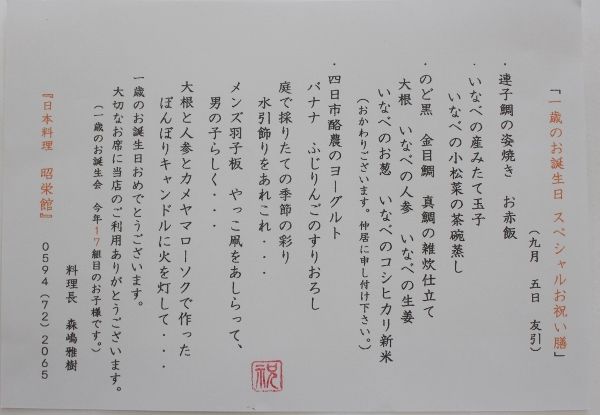 「一歳のお誕生日 スペシャルお祝い膳」
(九月 五日 友引)
・連子鯛の姿焼き お赤飯
・いなべの産みたて玉子
いなべの小松菜の茶碗蒸し
・のど黒 金目鯛 真鯛の雑炊仕立て
大根 いなべの人参 いなべの生姜
いなべのお葱 いなべのコシヒカリ新米
(おかわりございます。仲居に申し付け下さい。)
・四日市酪農のヨーグルト
バナナ ふじりんごのすりおろし
庭で採りたての季節の彩り
水引飾りをあれこれ・・・
メンズ羽子板 やっこ凧をあしらって、
男の子らしく・・・
大根と人参とカメヤマローソクで作った
ぼんぼりキャンドルに火を灯して・・・
一歳のお誕生日おめでとうございます。
大切なお席に当店のご利用ありがとうございます。
(一歳のお誕生会 今年17組目のお子様です。)
料理長 森嶋雅樹
『日本料理 昭栄館』 0594(72)2065
祝